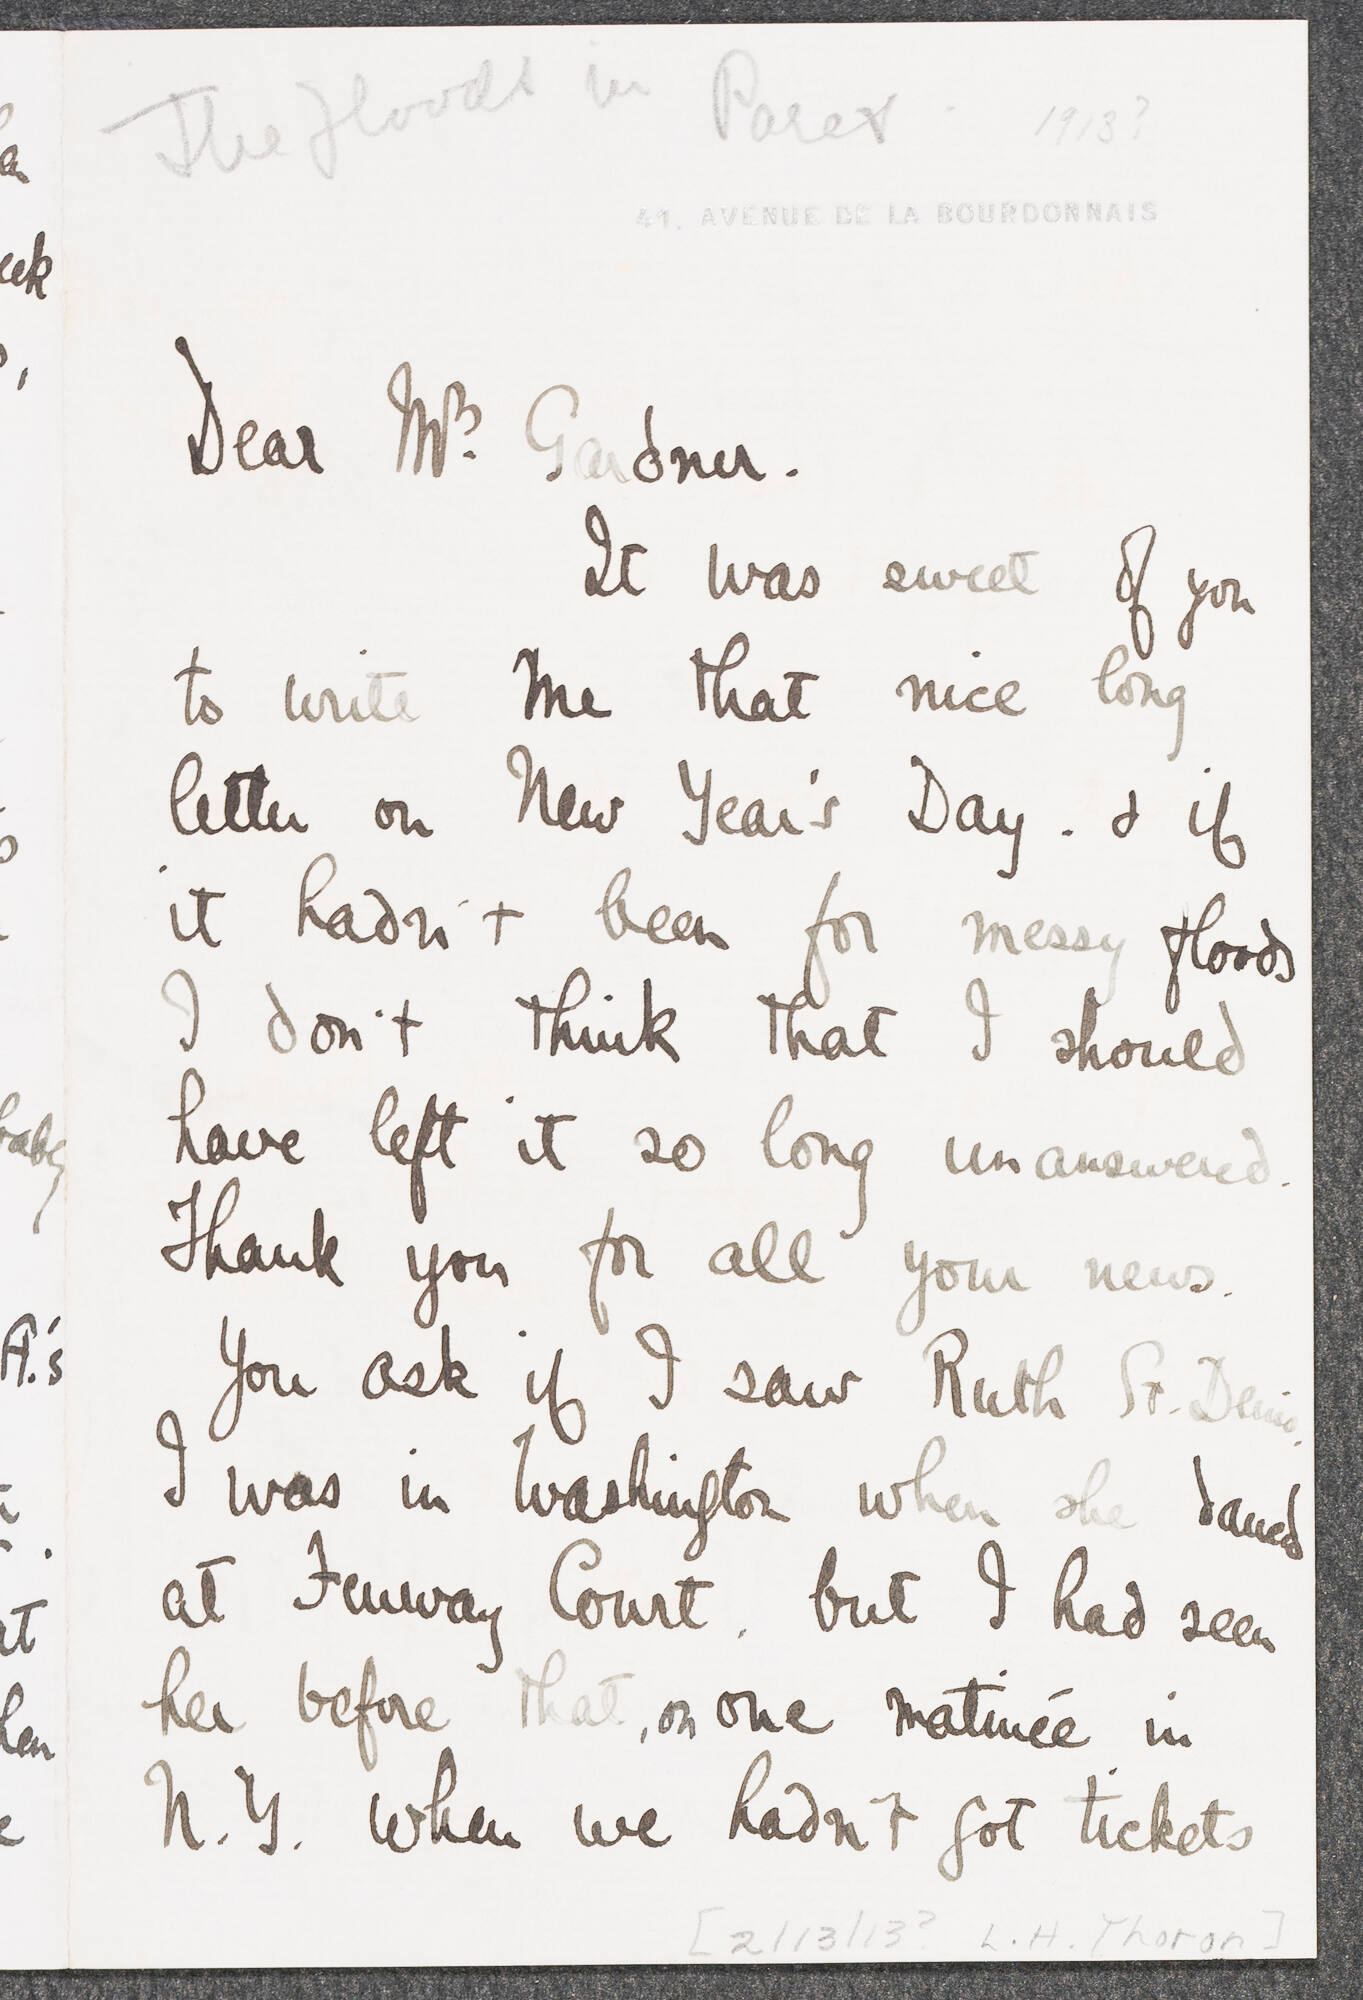 The floods in Paris. 1913?
41, AVENUE DE LA BOURDONNAIS
Dear Mrs. Gardner.
It was sweet of you
to write me that nice long
letter on New Year's Day. & if
it hadn't been for messy floods
I don't think that I should
have left it so long unanswered.
Thank you for all your news.
You ask if I saw Ruth St. Denis.
I was in Washington when she danced
at Fenway Court, but I had seen
her before that, on one matinée in
N.Y. when we hadn't got tickets
[2/13/13? L.H. Thoron]
eek
baby
A.'s